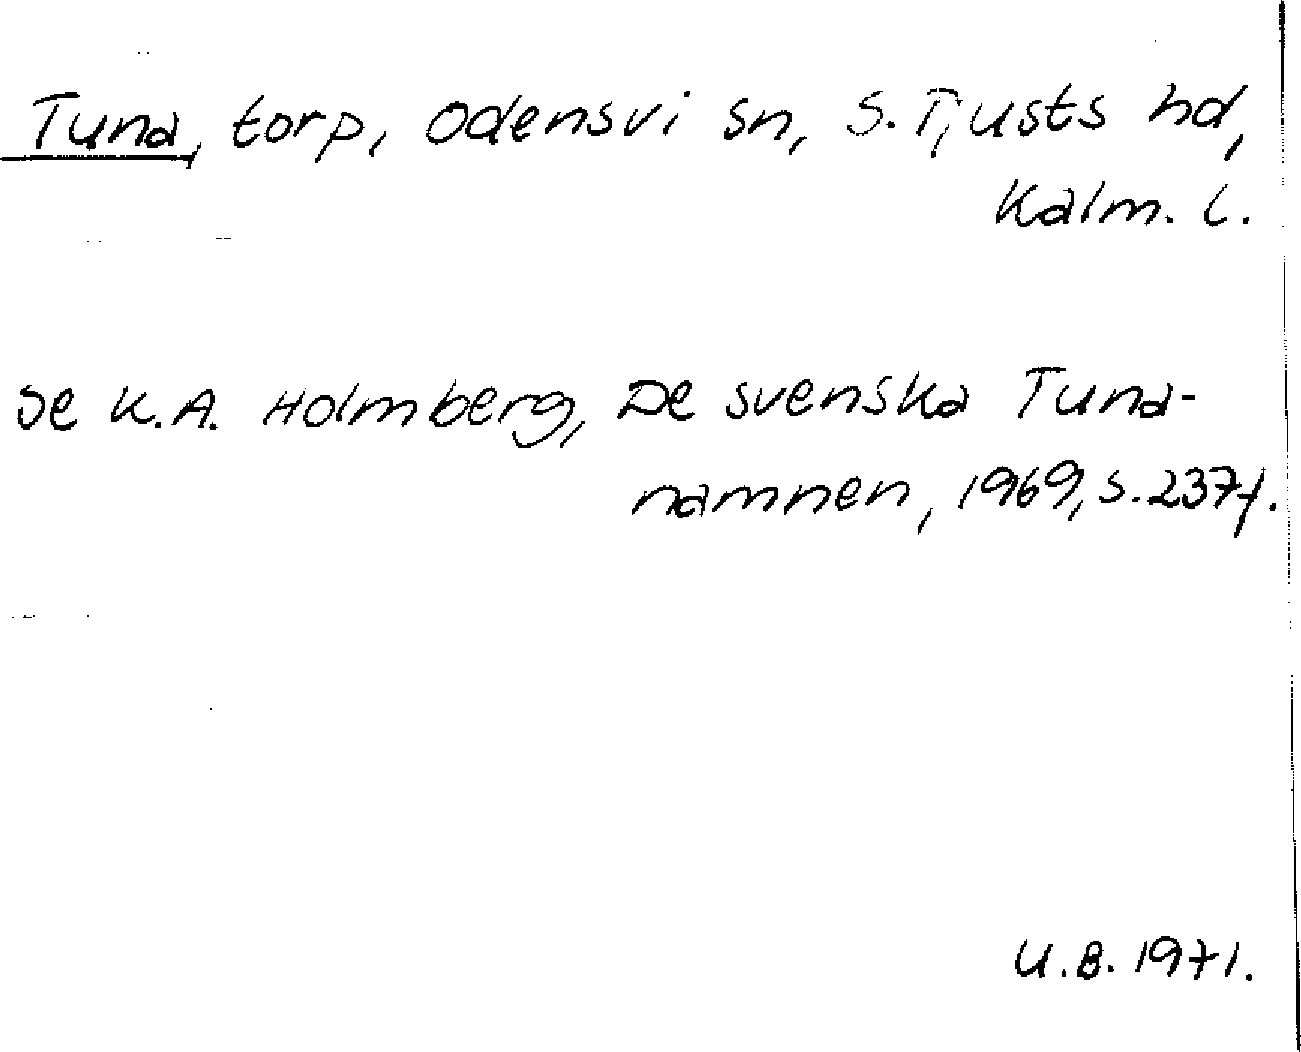 Tuna, torp, Odensvi sn, S. Tjusts hd,
Kalm. l.
Se K.A. Holmberg, De svenska Tuna-
namnen, 1969, s. 237f.
U.B. 1971.